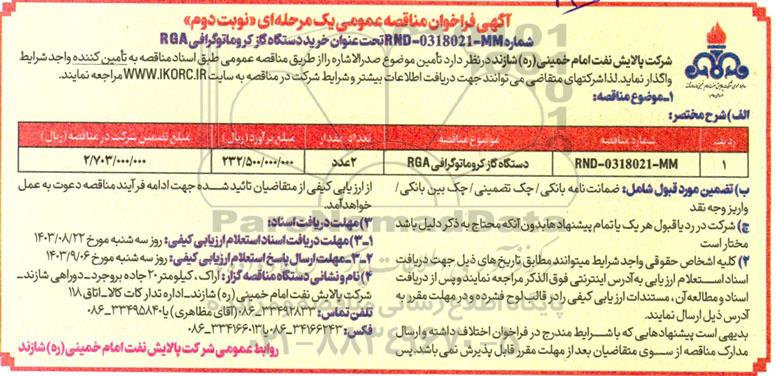 آگهی فراخوان مناقصه عمومی یک مرحله ای «نوبت دوم»
شماره RND-0318021-MM تحت عنوان خرید دستگاه گاز کروماتوگرافی RGA
شرکت پالایش نفت امام خمینی (ره) شازند در نظر دارد تأمین موضوع صدرالاشاره را از طریق مناقصه عمومی طبق اسناد مناقصه به تأمین کننده واجد شرایط
واگذار نماید. لذا شرکتهای متقاضی می توانند جهت دریافت اطلاعات بیشتر و شرایط شرکت در مناقصه به سایت WWW.IKORC.IR مراجعه نمایند.
۱_موضوع مناقصه:
الف) شرح مختصر:
ردیف شماره مناقصه موضوع مناقصه تعداد_مقدار مبلغ برآورد (ریال) مبلغ تضمین شرکت در مناقصه (ریال)
۱ RND-0318021-MM دستگاه گاز کروماتوگرافی RGA ۲عدد ۲۳۲/۵۰۰/۰۰۰/۰۰۰ ۲/۷۰۳/۰۰۰/۰۰۰
ب) تضمین مورد قبول شامل: ضمانت نامه بانکی / چک تضمینی / چک بین بانکی /
واریز وجه نقد
ج) شرکت در رد یا قبول هر یک یا تمام پیشنهادها بدون آنکه محتاج به ذکر دلیل باشد
مختار است
۲) کلیه اشخاص حقوقی واجد شرایط میتوانند مطابق تاریخ های ذیل جهت دریافت
اسناد استعلام ارزیابی به آدرس اینترنتی فوق الذکر مراجعه نمایند و پس از دریافت
اسناد و مطالعه آن، مستندات ارزیابی کیفی را در قالب لوح فشرده و در مهلت مقرر به
آدرس ذیل ارسال نمایند.
بدیهی است پیشنهادهایی که با شرایط مندرج در فراخوان اختلاف داشته و ارسال
مدارک مناقصه از سوی متقاضیان بعد از مهلت مقرر قابل پذیرش نمی باشد. پس
از ارزیابی کیفی از متقاضیان تائید شده جهت ادامه فرآیند مناقصه دعوت به عمل
خواهد آمد.
۳) مهلت دریافت اسناد:
۱_۳) مهلت دریافت اسناد استعلام ارزیابی کیفی: روز سه شنبه مورخ ۱۴۰۳/۰۸/۲۲
۲_۳_مهلت ارسال پاسخ استعلام ارزیابی کیفی: روز سه شنبه مورخ ۱۴۰۳/۹/۰۶
۴) نام و نشانی دستگاه مناقصه گزار: اراک، کیلومتر ۲۰ جاده بروجرد_دوراهی شازند_
شرکت پالایش نفت امام خمینی (ره) شازند_اداره تدارکات کالا_اتاق ۱۱۸
تلفن تماس: ۳۳۴۹۲۸۳۳_۰۸۶ (آقای مظاهری) یا ۳۳۴۹۵۸۴۰_۰۸۶
فکس: ۳۴۱۶۶۲۴۳_۰۸۶ یا ۳۳۴۱۶۶۰۱۳_۰۸۶
روابط عمومی شرکت پالایش نفت امام خمینی (ره) شازند